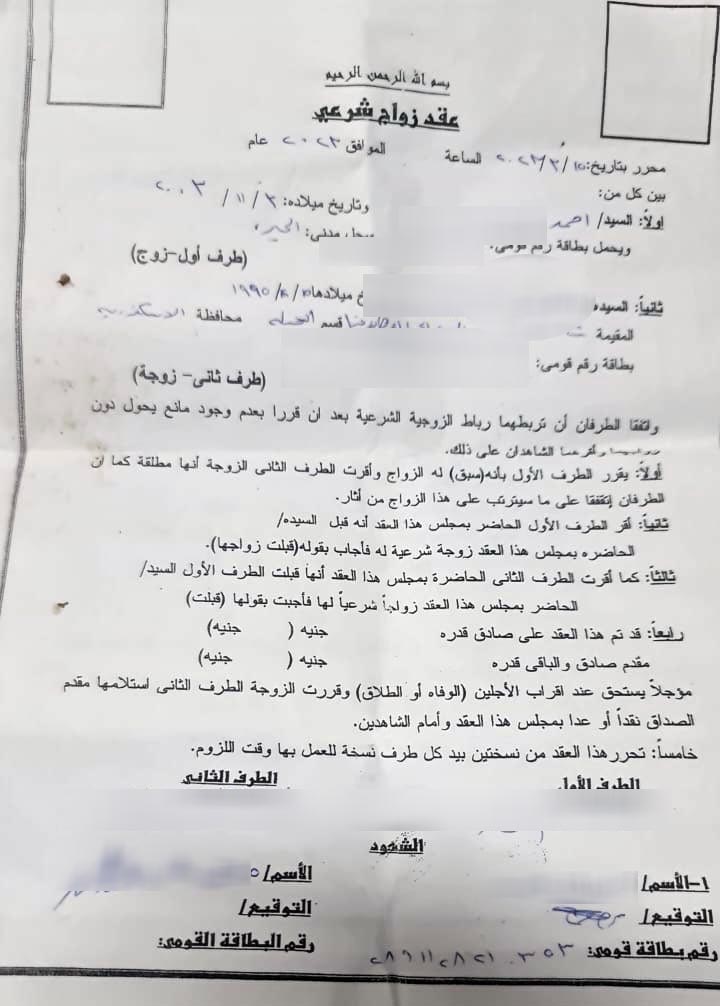 بسم الله الرحمن الرحيم
عقد زواج شرعي
محرر بتاريخ: ١٥/٣/٢٠٢٣ الساعة الموافق ٢٠٢٣ عام
بين كل من:
أولاً: السيد/ احمد وتاريخ ميلاده: ٣/١١/٢٠٠٣
ويحمل بطاقة رقم قومى. سجل مدنى:
(طرف أول-زوج)
ثانياً: السيده ميلادها ١٩٩٥
المقيمة قسم محافظة الاسكندريه
بطاقة رقم قومى:
(طرف ثانى- زوجة)
واتفقا الطرفان أن تربطهما رباط الزوجية الشرعية بعد ان قررا بعدم وجود مانع يحول دون
الشاهدان على ذلك.
أولاً: يقرر الطرف الأول بأنه(سبق) له الزواج وأقرت الطرف الثانى الزوجة أنها مطلقة كما ان
الطرفان إتقفقا على ما سيترتب على هذا الزواج من أثار.
ثانياً: أقر الطرف الأول الحاضر بمجلس هذا العقد أنه قبل السيده/
الحاضره بمجلس هذا العقد زوجة شرعية له فأجاب بقوله(قبلت زواجها).
ثالثاً: كما أقرت الطرف الثانى الحاضرة بمجلس هذا العقد أنها قبلت الطرف الأول السيد/
الحاضر بمجلس هذا العقد زواجاً شرعياً لها فأجبت بقولها (قبلت)
رابعاً: قد تم هذا العقد على صادق قدره جنيه ( جنيه)
مقدم صادق والباقى قدره جنيه ( جنيه)
مؤجلاً يستحق عند اقراب الأجلين (الوفاه أو الطلاق) وقررت الزوجة الطرف الثانى استلامها مقدم
الصداق نقداً أو عدا بمجلس هذا العقد وأمام الشاهدين.
خامساً: تحرر هذا العقد من نسختين بيد كل طرف نسخة للعمل بها وقت اللزوم.
الطرف الأول الطرف الثانى
الشهود
١-الأسم/ الأسم/
التوقيع/ التوقيع/
رقم بطاقة قومى: رقم البطاقة القومى: